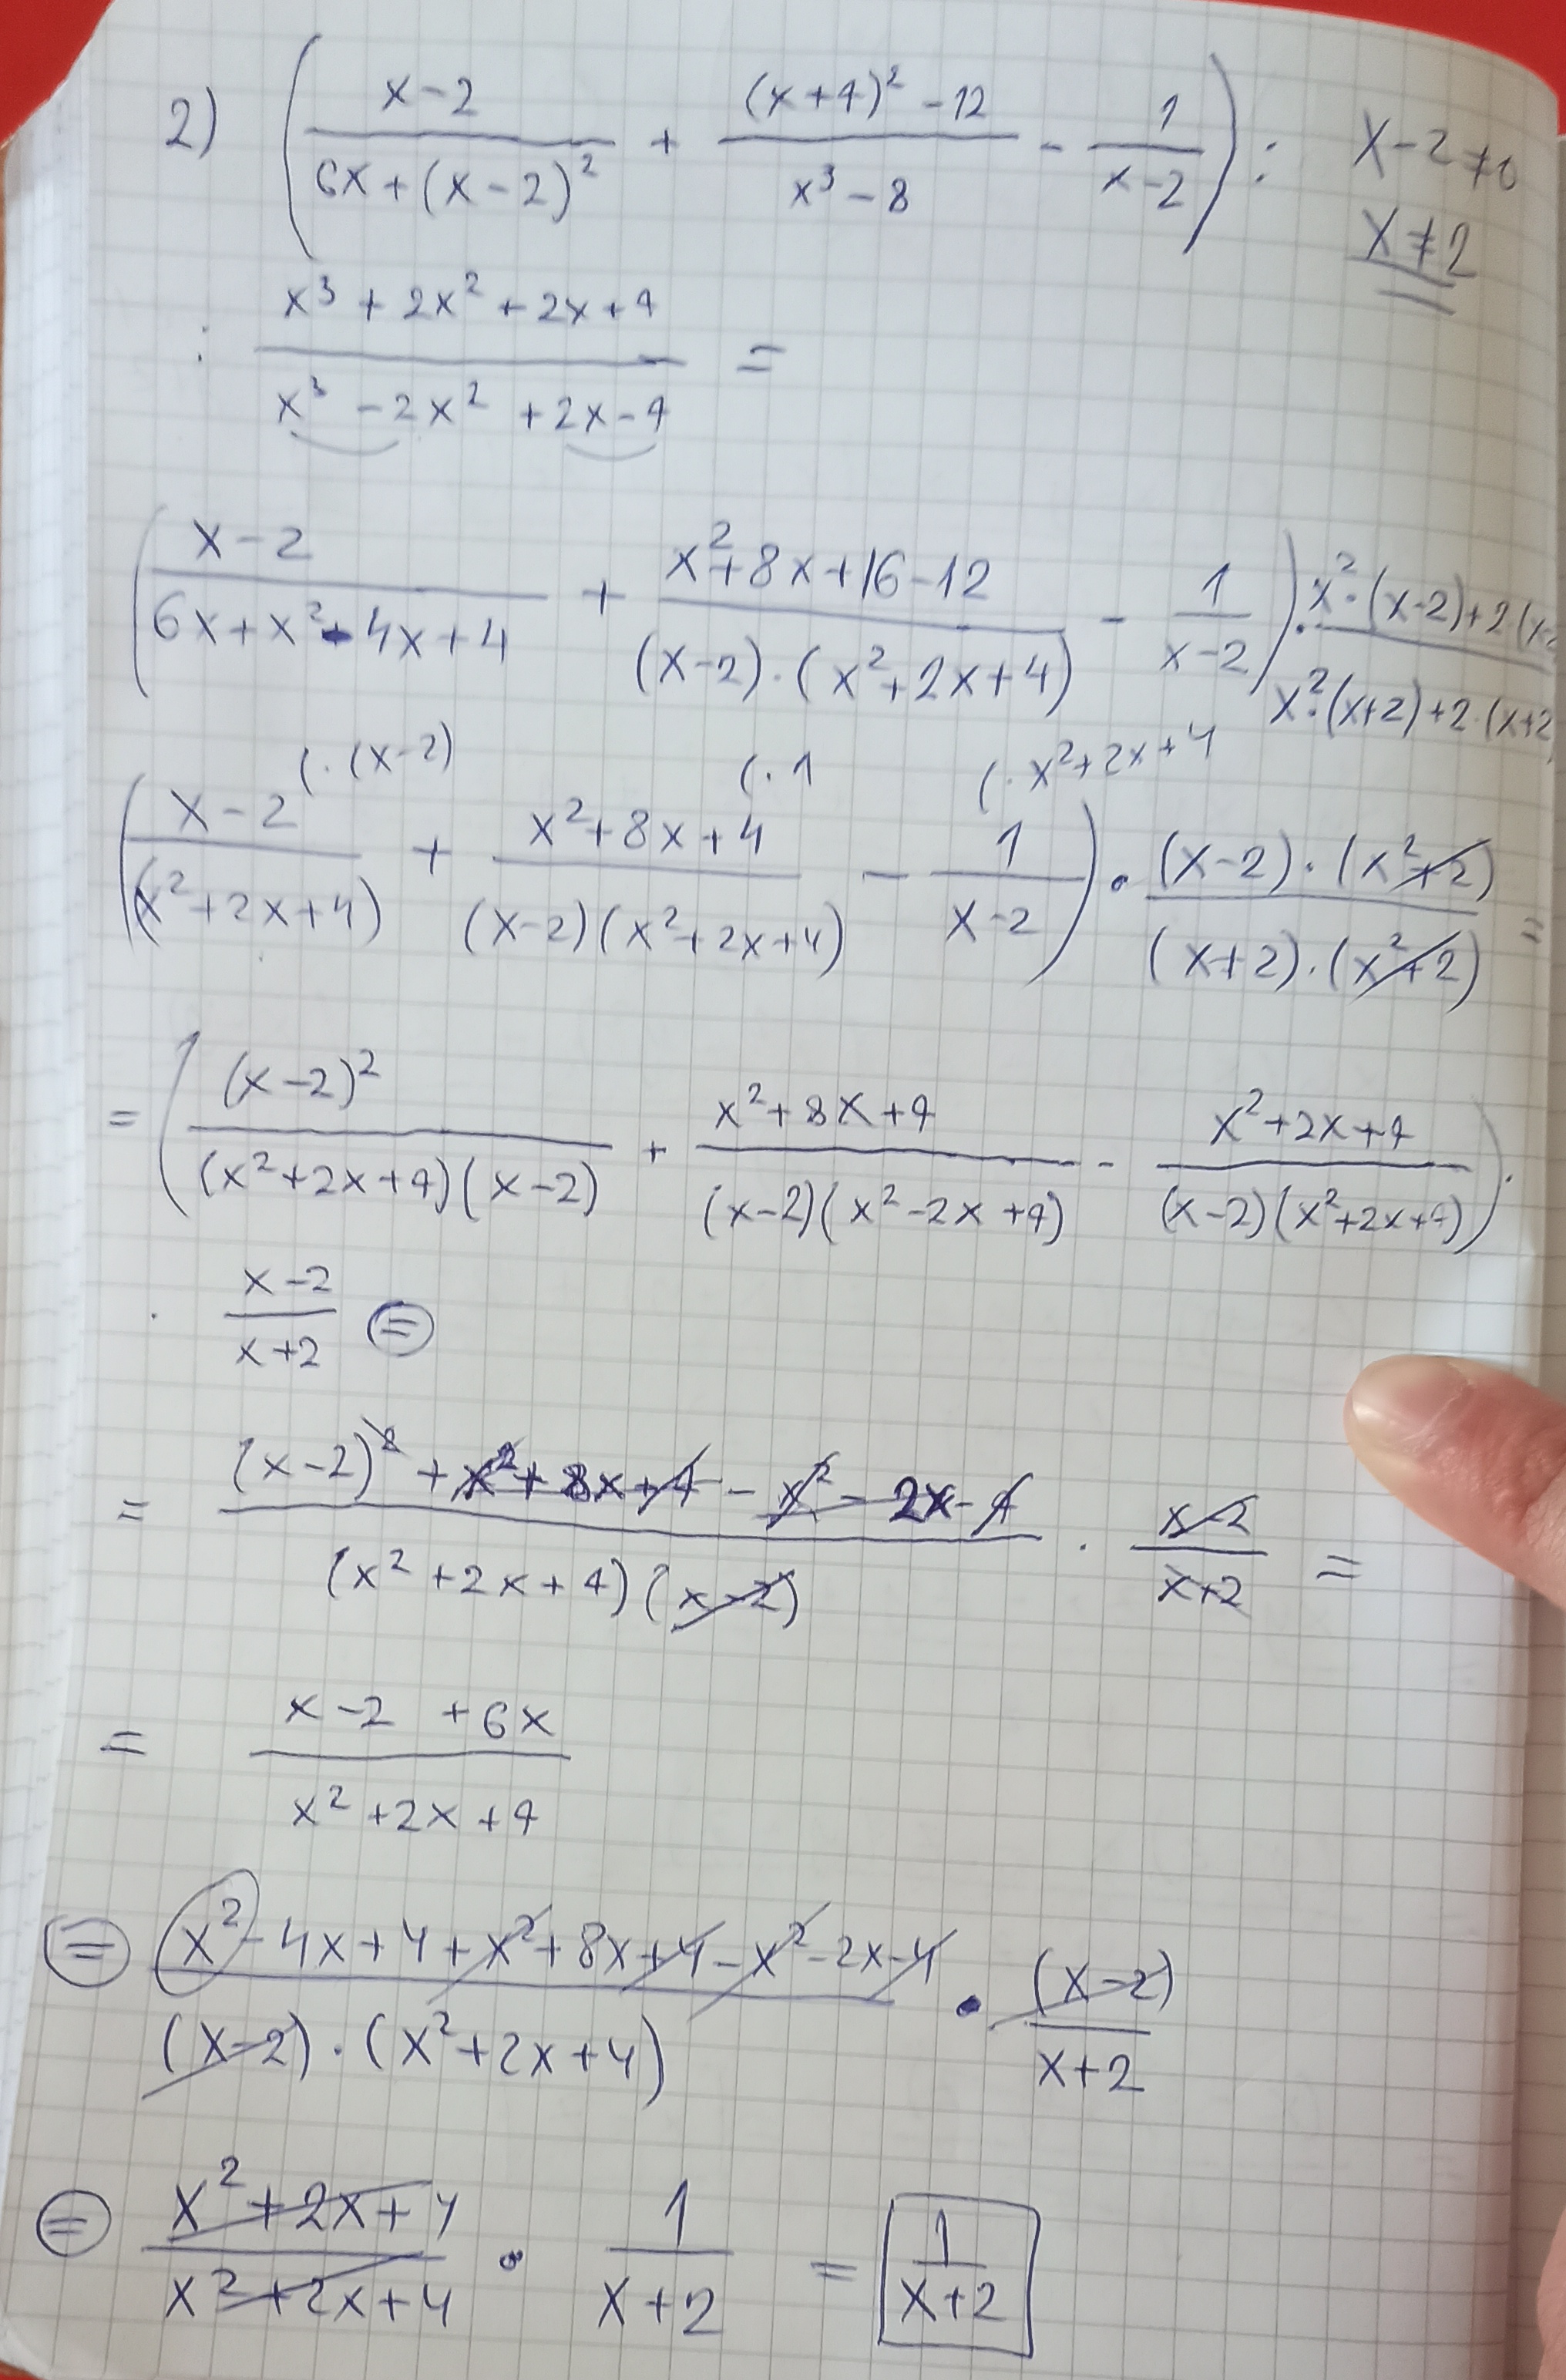 2) ( (x-2)/(6x+(x-2)²) + ((x+4)²-12)/(x³-8) - 1/(x-2) ) : x-2≠0
x≠2
: (x³+2x²+2x+4)/(x³-2x²+2x-4) =
( (x-2)/(6x+x²-4x+4) + (x²+8x+16-12)/((x-2)·(x²+2x+4)) - 1/(x-2) ) · (x²·(x-2)+2(x-2)/(x²·(x+2)+2·(x+2)
(·(x-2) (·1 (·x²+2x+4
( (x-2)/(x²+2x+4) + (x²+8x+4)/((x-2)(x²+2x+4)) - 1/(x-2) ) · ((x-2)·(x²+2))/((x+2)·(x²+2)) =
= ( (x-2)²/((x²+2x+4)(x-2)) + (x²+8x+4)/((x-2)(x²-2x+4)) - (x²+2x+4)/((x-2)(x²+2x+4)) ) ·
· (x-2)/(x+2) =
= ((x-2)²+x²+8x+4-x²-2x-4)/((x²+2x+4)(x-2)) · (x-2)/(x+2) =
= (x-2+6x)/(x²+2x+4)
= (x²-4x+4+x²+8x+4-x²-2x-4)/((x-2)·(x²+2x+4)) · (x-2)/(x+2)
= (x²+2x+4)/(x²+2x+4) · 1/(x+2) = 1/(x+2)